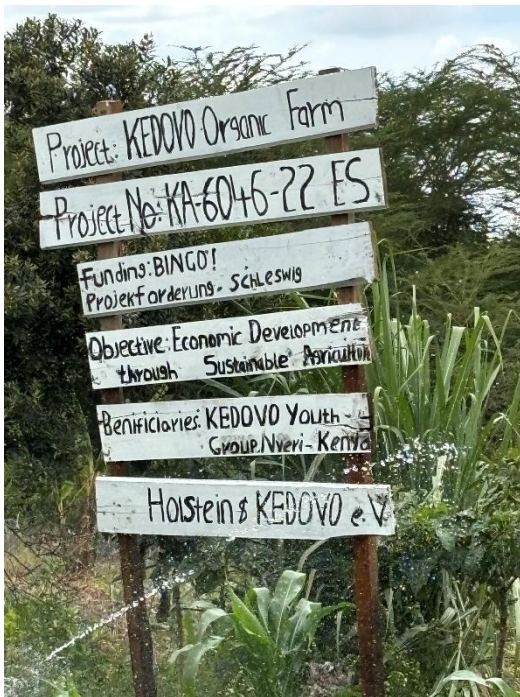 Project: KEDOVO Organic Farm
Project No: KA-6046-22 ES
Funding: BINGO!
Projekforderung - Schleswig
Objective: Economic Development
through Sustainable Agricultur
Benificiaries: KEDOVO Youth -
Group, Nyeri - Kenya
Holstein & KEDOVO e.V